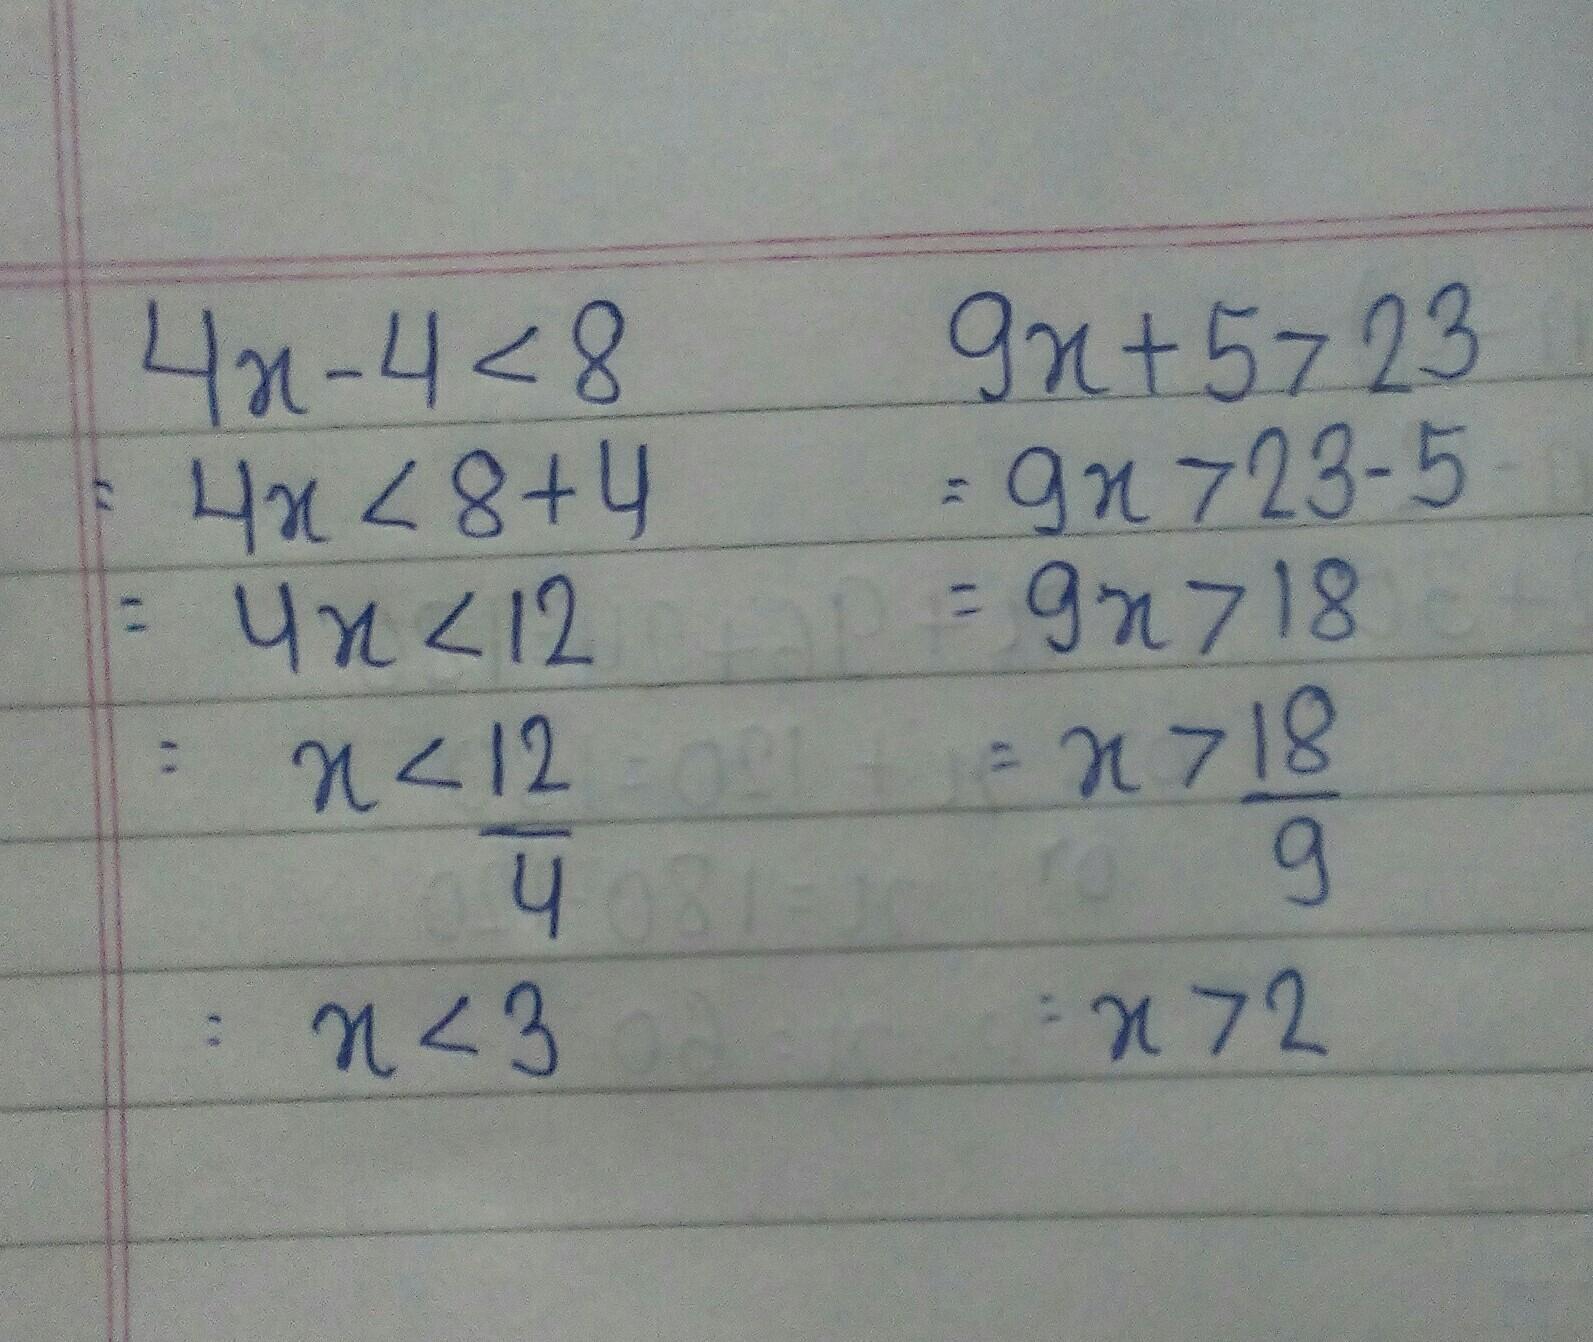 4x-4<8
= 4x<8+4
= 4x<12
= x<12/4
= x<3
9x+5>23
= 9x>23-5
= 9x>18
= x>18/9
= x>2